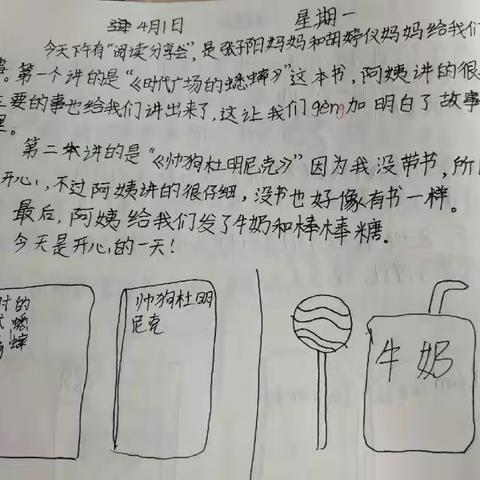 4月1日 星期一
今天下午有“阅读分享会”,是张子阳妈妈和胡婷仪妈妈给我们
。第一个讲的是“《时代广场的蟋蟀》”这本书,阿姨讲的很
主要的事也给我们讲出来了,这让我们gèng加明白了故事
里。
第二本讲的是“《帅狗杜明尼克》”因为我没带书,所
开心,不过阿姨讲的很仔细,没书也好像有书一样。
最后,阿姨给我们发了牛奶和棒棒糖.
今天是开心的一天!
时的
蟋
蟀
帅狗杜明
尼克
牛奶